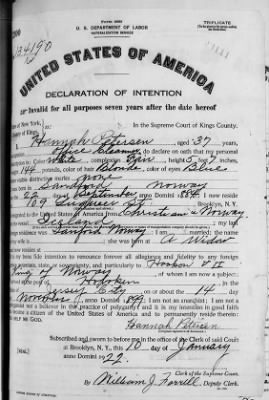 Form 2203
U. S. DEPARTMENT OF LABOR
NATURALIZATION SERVICE
TRIPLICATE
No. 134190
UNITED STATES OF AMERICA
DECLARATION OF INTENTION
Invalid for all purposes seven years after the date hereof
State of New York,
County of Kings,
In the Supreme Court of Kings County.
I, Hannah Petersen, aged 37 years,
occupation Office Cleaner, do declare on oath that my personal
description is: Color White, complexion Fair, height 5 feet 7 inches,
weight 144 pounds, color of hair Blonde, color of eyes Blue
other visible distinctive marks none
I was born in Norway
on the 22 day of September, anno Domini 1884; I now reside
at 109
to the United States of America from Christiania Norway
; my last
foreign residence was Norway; I am married; the name
of my wife is ; she was born at A Widow
and now resides at
It is my bona fide intention to renounce forever all allegiance and fidelity to any foreign
prince, potentate, state, or sovereignty, and particularly to Haakon VII
King of Norway, of whom I am now a subject;
I arrived at the port of Hoboken
New Jersey, on or about the 14
day of, anno Domini; I am not an anarchist; I am not a
polygamist nor a believer in the practice of polygamy; and it is my intention in good faith
to become a citizen of the United States of America and to permanently reside therein:
SO HELP ME GOD.
Hannah Petersen
Subscribed and sworn to before me in the office of the Clerk of said Court
[SEAL] at Brooklyn, N. Y., this 10 day of January
anno Domini 1922.
Clerk of the Supreme Court.
By William J. Farrell, Deputy Clerk.